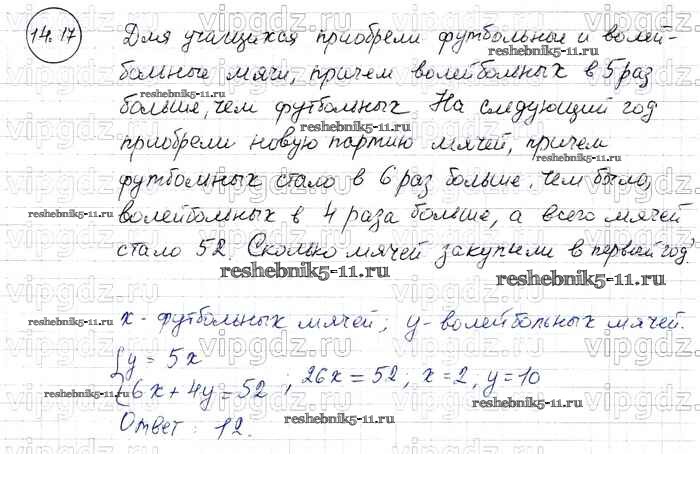 14.17
Для учащихся приобрели футбольные и волей-
больные мячи, причем волейбольных в 5 раз
больше, чем футбольных. На следующий год
приобрели новую партию мячей, причем
футбольных стало в 6 раз больше, чем было,
волейбольных в 4 раза больше, а всего мячей
стало 52. Сколько мячей закупили в первый год?
x - футбольных мячей; y - волейбольных мячей.
{y = 5x
{6x + 4y = 52 ; 26x = 52; x = 2, y = 10
Ответ: 12.
reshebnik5-11.ru
vipgdz.ru